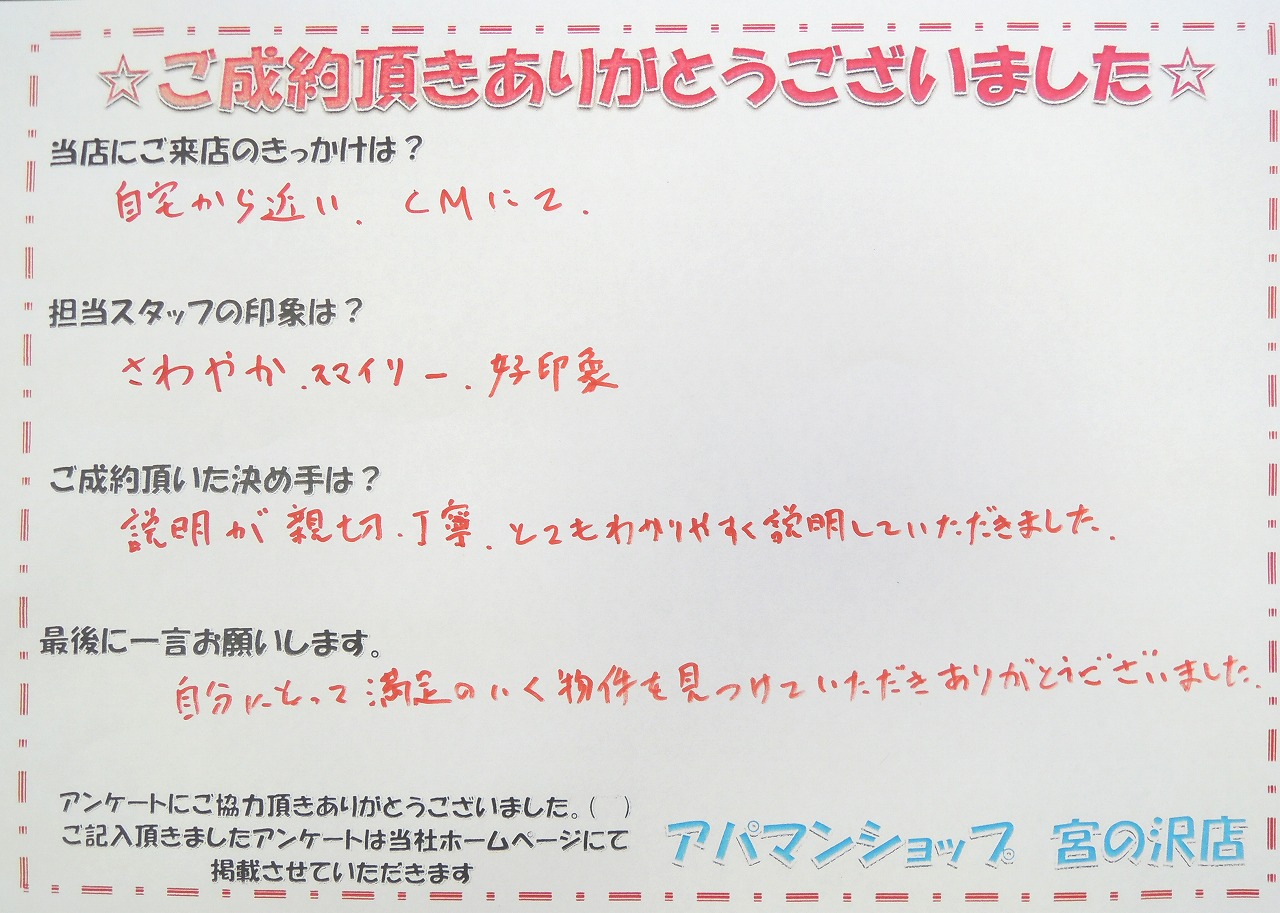 ☆ご成約頂きありがとうございました☆
当店にご来店のきっかけは？
自宅から近い. CMにて.
担当スタッフの印象は？
さわやか.スマイリー.好印象
ご成約頂いた決め手は？
説明が親切.丁寧.とてもわかりやすく説明していただきました.
最後に一言お願いします。
自分にとって満足のいく物件を見つけていただきありがとうございました.
アンケートにご協力頂きありがとうございました。(　)
ご記入頂きましたアンケートは当社ホームページにて
掲載させていただきます
アパマンショップ 宮の沢店